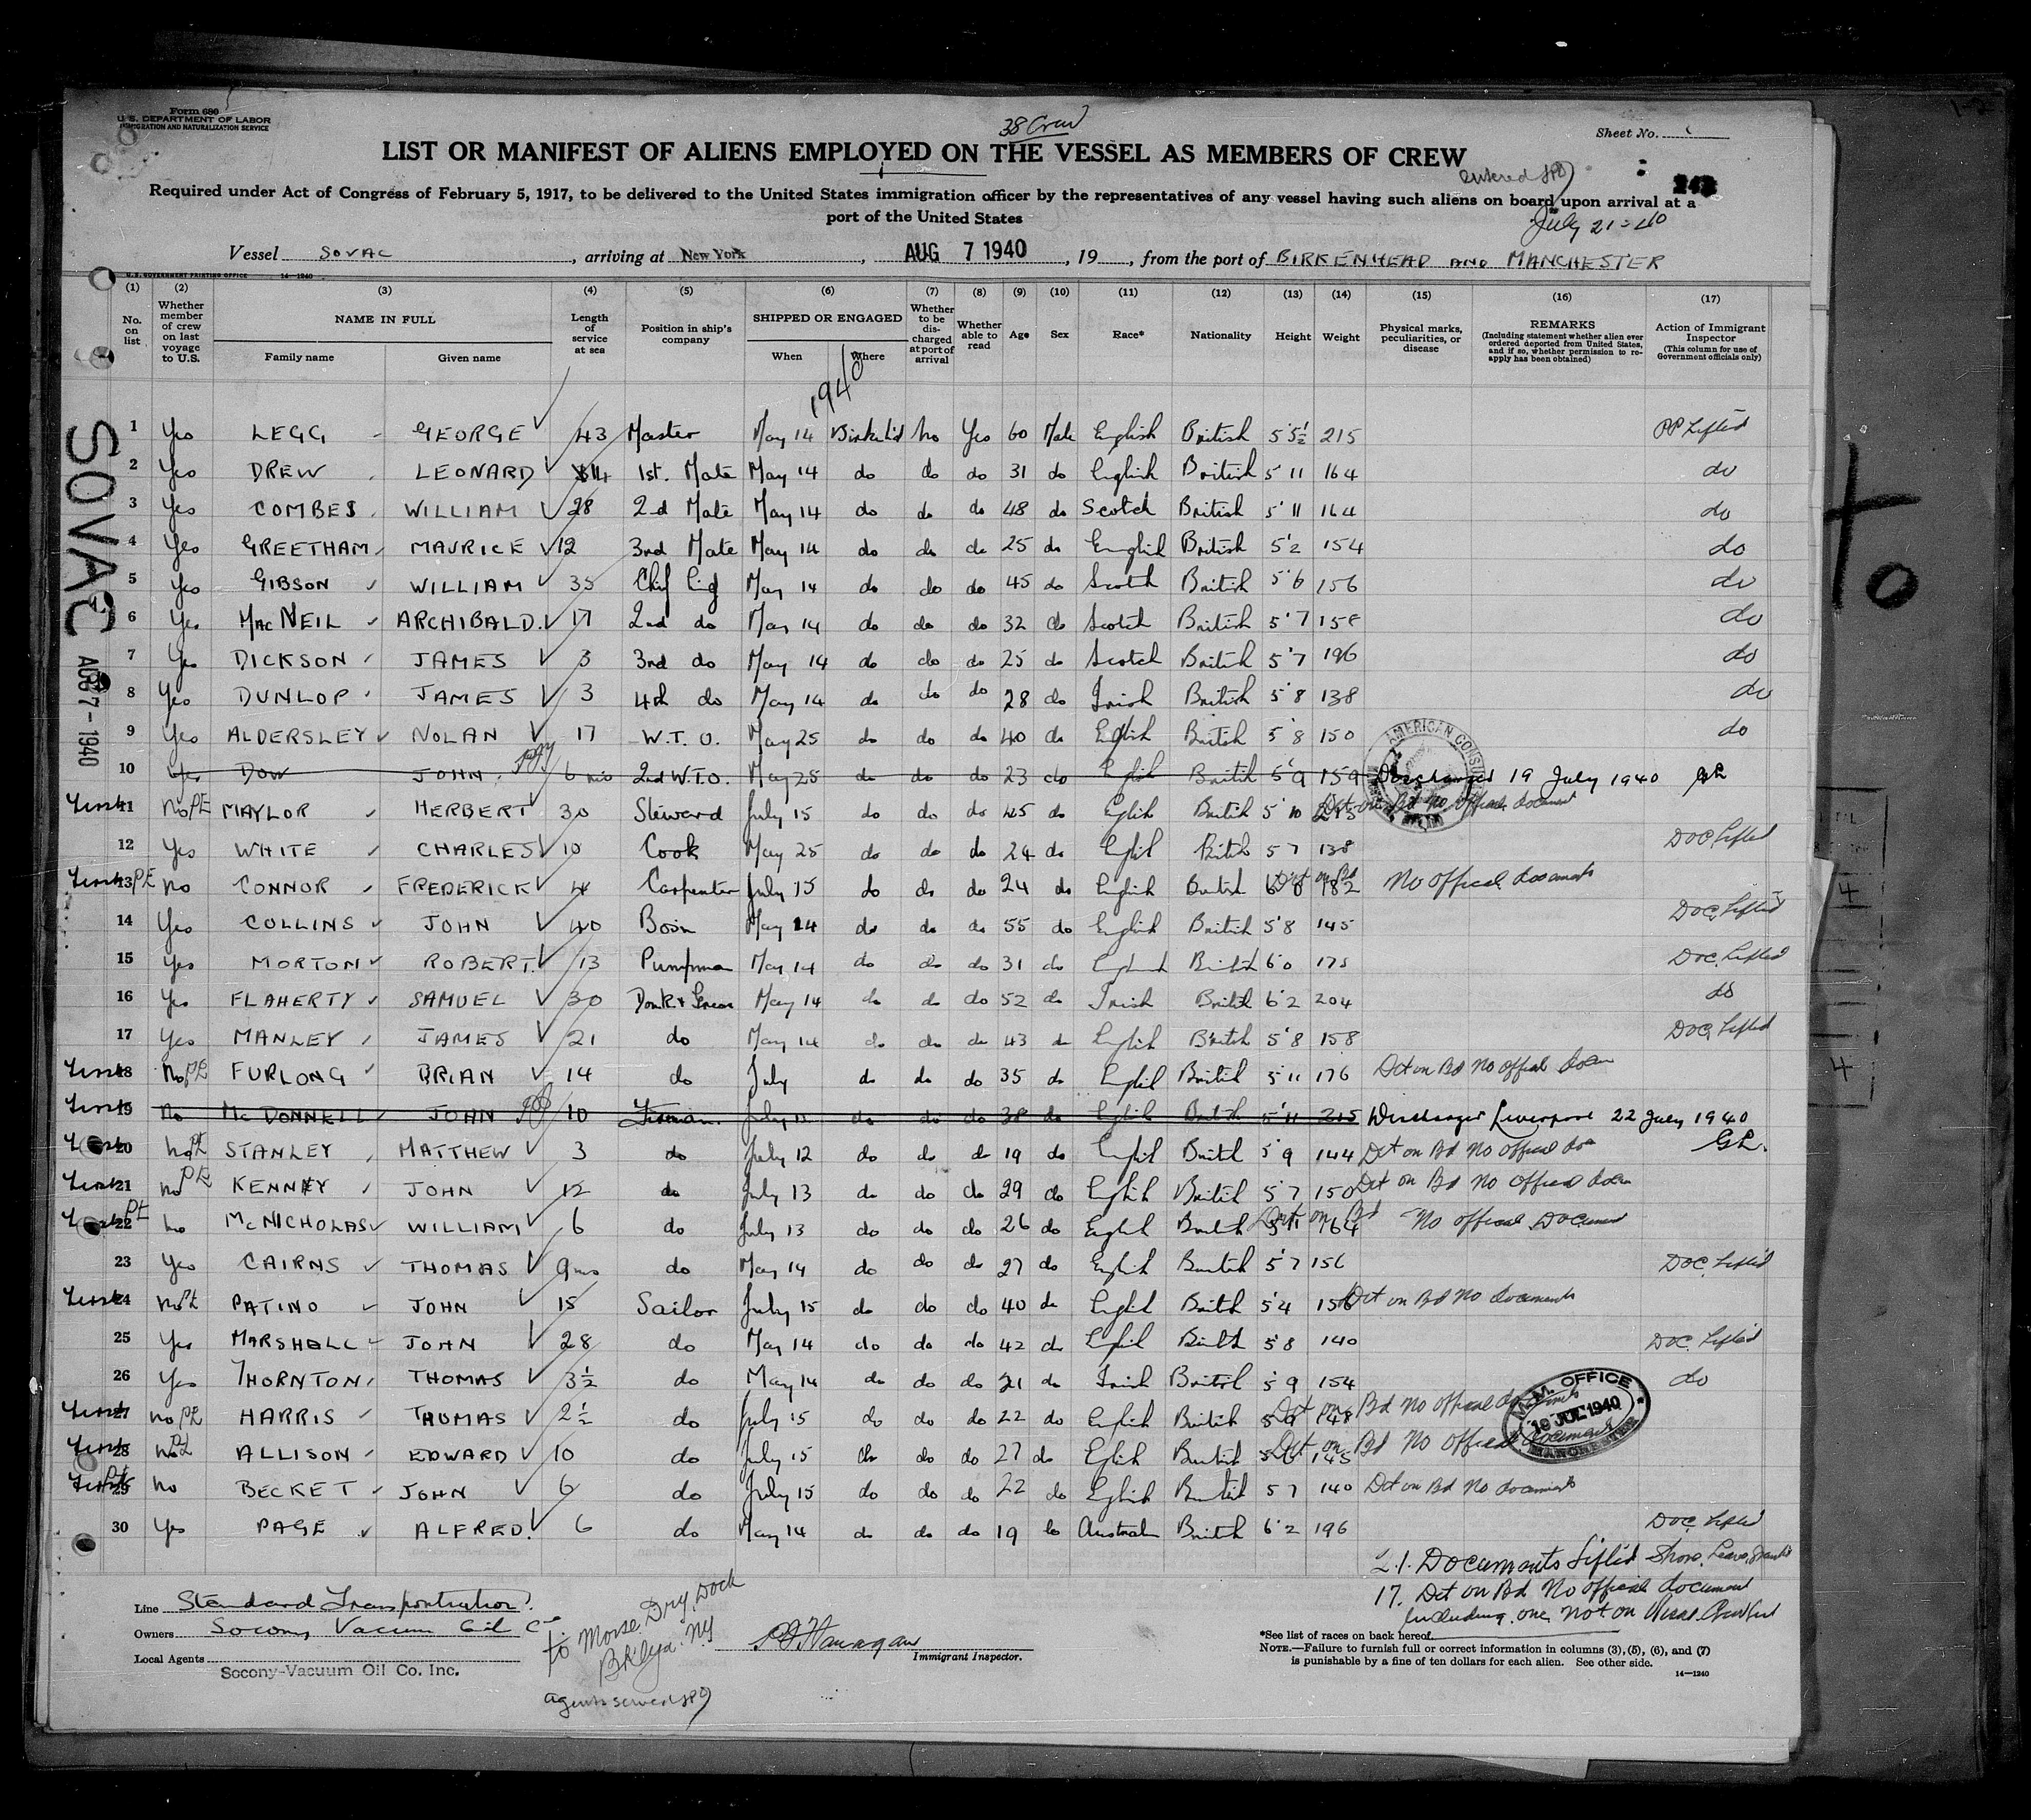 Form 680
U. S. DEPARTMENT OF LABOR
IMMIGRATION AND NATURALIZATION SERVICE
38 Crew
Sheet No.
LIST OR MANIFEST OF ALIENS EMPLOYED ON THE VESSEL AS MEMBERS OF CREW
entered
Required under Act of Congress of February 5, 1917, to be delivered to the United States immigration officer by the representatives of any vessel having such aliens on board upon arrival at a
port of the United States
July 21-40
Vessel SOVAC, arriving at New York, AUG 7 1940, 19, from the port of BIRKENHEAD AND MANCHESTER
U. S. GOVERNMENT PRINTING OFFICE 14-1240
(1) (2) (3) (4) (5) (6) (7) (8) (9) (10) (11) (12) (13) (14) (15) (16) (17)
No. on list
Whether member of crew on last voyage to U.S.
NAME IN FULL
Family name
Given name
Length of service at sea
Position in ship's company
SHIPPED OR ENGAGED
When
Where
Whether to be discharged at port of arrival
Whether able to read
Age
Sex
Race*
Nationality
Height
Weight
Physical marks, peculiarities, or disease
REMARKS
(Including statement whether alien ever ordered deported from United States, and if so, whether permission to reapply has been obtained)
Action of Immigrant Inspector
(This column for use of Government officials only)
1940
SOVAC
AUG 7 - 1940
1 Yes LEGG GEORGE 43 Master May 14 Birkh'd No Yes 60 Male English British 5'5½ 215 PP Lifted
2 Yes DREW LEONARD 14 1st. Mate May 14 do do do 31 do English British 5 11 164 do
3 Yes COMBES WILLIAM 28 2nd Mate May 14 do do do 48 do Scotch British 5'11 164 do
4 Yes GREETHAM MAURICE 12 3rd Mate May 14 do do do 25 do English British 5'2 154 do
5 Yes GIBSON WILLIAM 35 Chief Eng May 14 do do do 45 do Scotch British 5'6 156 do
6 Yes MacNEIL ARCHIBALD. 17 2nd do May 14 do do do 32 do Scotch British 5'7 158 do
7 Yes DICKSON JAMES 3 3rd do May 14 do do do 25 do Scotch British 5'7 196 do
8 Yes DUNLOP JAMES 3 4th do May 14 do do do 28 do Irish British 5'8 138 do
9 Yes ALDERSLEY NOLAN 17 W.T.O. May 25 do do do 40 do English British 5'8 150 do
10 Yes DOW JOHN 6 mo 2nd W.T.O. May 28 do do do 23 do English British 5'9 159 Discharged 19 July 1940 GL
11 No PE MAYLOR HERBERT 30 Steward July 15 do do do 45 do English British 5'10 Det on Bd No official document
12 Yes WHITE CHARLES 10 Cook May 25 do do do 24 do English British 5 7 138 Doc Lifted
13 PE No CONNOR FREDERICK 4 Carpenter July 15 do do do 24 do English British 6'0 182 Det on Bd No official documents
14 Yes COLLINS JOHN 40 Bosn May 14 do do do 55 do English British 5'8 145 Doc. Lifted
15 Yes MORTON ROBERT. 13 Pumpman May 14 do do do 31 do England British 6'0 175 Doc. Lifted
16 Yes FLAHERTY SAMUEL 30 May 14 do do do 52 do Irish British 6'2 204 do
17 Yes MANLEY JAMES 21 do May 14 do do do 43 do English British 5'8 158 Doc Lifted
18 No PE FURLONG BRIAN 14 do July do do do 35 do English British 5'11 176 Det on Bd No official docum
19 No McDONNELL JOHN 10 Fireman July 12 do do do 38 do English British 5'11 215 Discharged Liverpool 22 July 1940
20 No PE STANLEY MATTHEW 3 do July 12 do do do 19 do English British 5'9 144 Det on Bd No official doc GL.
21 No PE KENNEY JOHN 12 do July 13 do do do 29 do English British 5'7 150 Det on Bd No official docum
22 PE No McNICHOLAS WILLIAM 6 do July 13 do do do 26 do English British 164 Det on Bd No official Document
23 Yes CAIRNS THOMAS 9 mos do May 14 do do do 27 do English British 5'7 156 Doc. Lifted
24 No PE PATINO JOHN 15 Sailor July 15 do do do 40 do English British 5'4 156 Det on Bd No documents
25 Yes MARSHALL JOHN 28 do May 14 do do do 42 do English British 5'8 140 Doc. Lifted
26 Yes THORNTON THOMAS 3½ do May 14 do do do 21 do Irish British 5'9 154 do
27 No PE HARRIS THOMAS 2½ do July 15 do do do 22 do English British 5'9 148 Det on Bd No official documents
28 No PE ALLISON EDWARD 10 do July 15 do do do 27 do English British 5'6 145 Det on Bd No official documents
29 No BECKET JOHN 6 do July 15 do do do 22 do English British 5 7 140 Det on Bd No documents
30 Yes PAGE ALFRED. 6 do May 14 do do do 19 do Australian British 6'2 196 Doc. Lifted
AMERICAN CONSUL
M.M. OFFICE
18 JUL 1940
MANCHESTER
21. Documents Lifted Shore Leave Granted
17. Det on Bd No official document
Including one not on Visaed Crew List
Line Standard Transportation
Owners Socony Vacuum Oil Co
Local Agents
Socony-Vacuum Oil Co. Inc.
to Morse Dry Dock
Bklyn. NY
agents served
Immigrant Inspector.
*See list of races on back hereof.
NOTE.—Failure to furnish full or correct information in columns (3), (5), (6), and (7)
is punishable by a fine of ten dollars for each alien. See other side.
14-1240